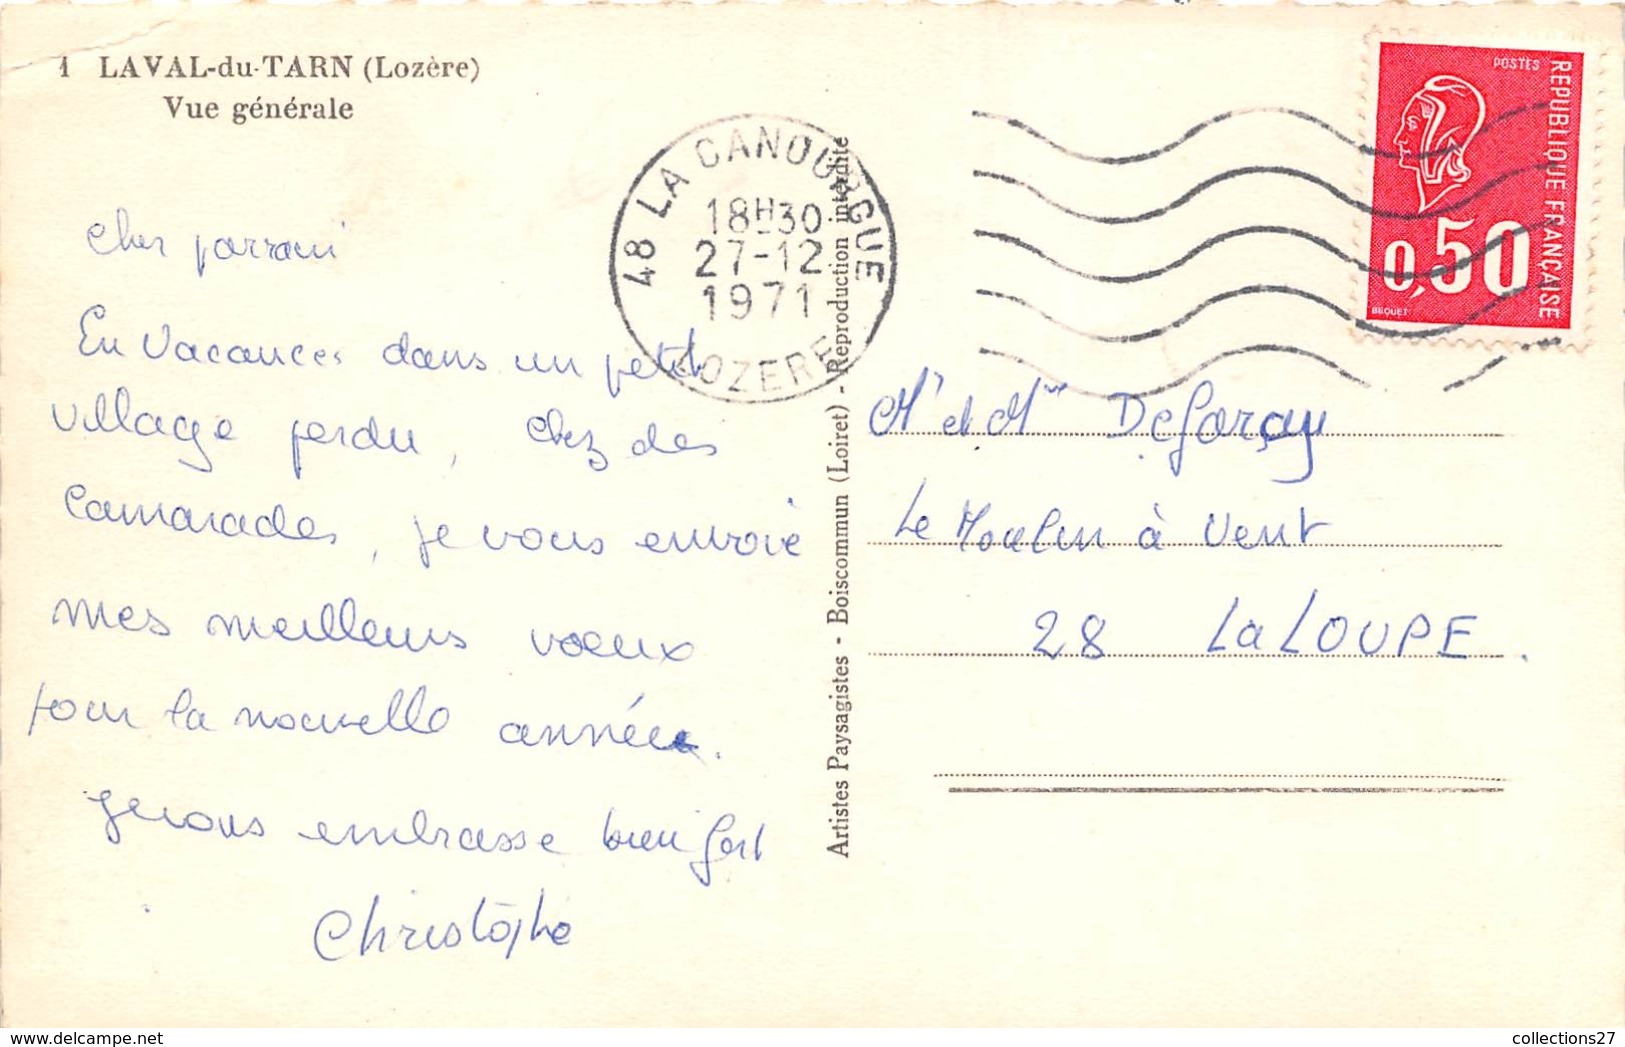 1 LAVAL-du-TARN (Lozère)
Vue générale
48 LA CANOURGUE
18H30
27-12
1971
LOZERE
POSTES
REPUBLIQUE FRANÇAISE
0,50
BEQUET
Cher parrain
En vacances dans un petit
village perdu, chez des
camarades, je vous envoie
mes meilleurs voeux
pour la nouvelle année.
Je vous embrasse bien fort
Christophe
Artistes Paysagistes - Boiscommun (Loiret) - Reproduction interdite
Mr et Mme Defarçy
Le Moulin à Vent
28 La LOUPE.
collections27